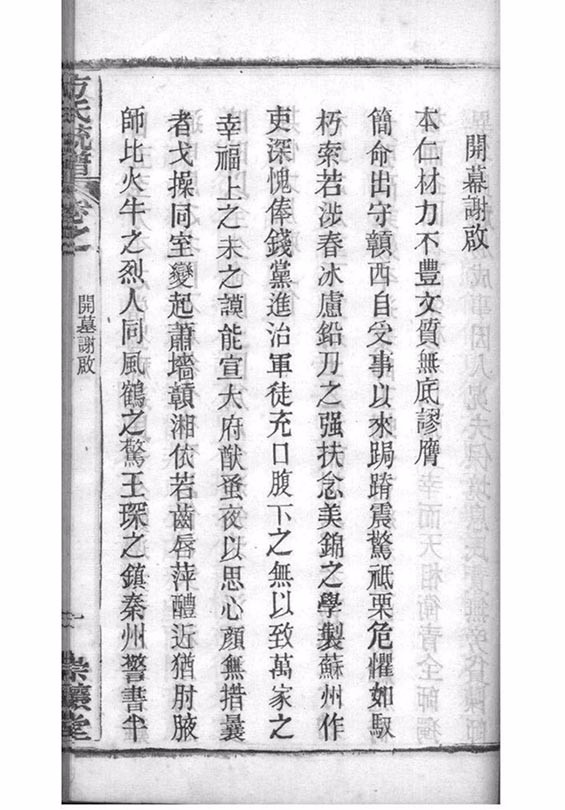 開幕謝啟
本仁材力不豐文質無底謬膺
簡命出守贛西自受事以來跼蹐震驚祗栗危懼如馭
朽索若涉春冰慮鉛刀之强扶念美錦之學製蘇州作
吏深愧俸錢黨進治軍徒充口腹下之無以致萬家之
幸福上之未之謨能宣大府猷蚤夜以思心顏無措曩
者戈操同室變起蕭墻贛湘依若齒唇萍醴近猶肘腋
師比火牛之烈人同風鶴之驚王琛之鎮秦州警書半
方氏統譜
卷之
開幕謝啟
一
堂